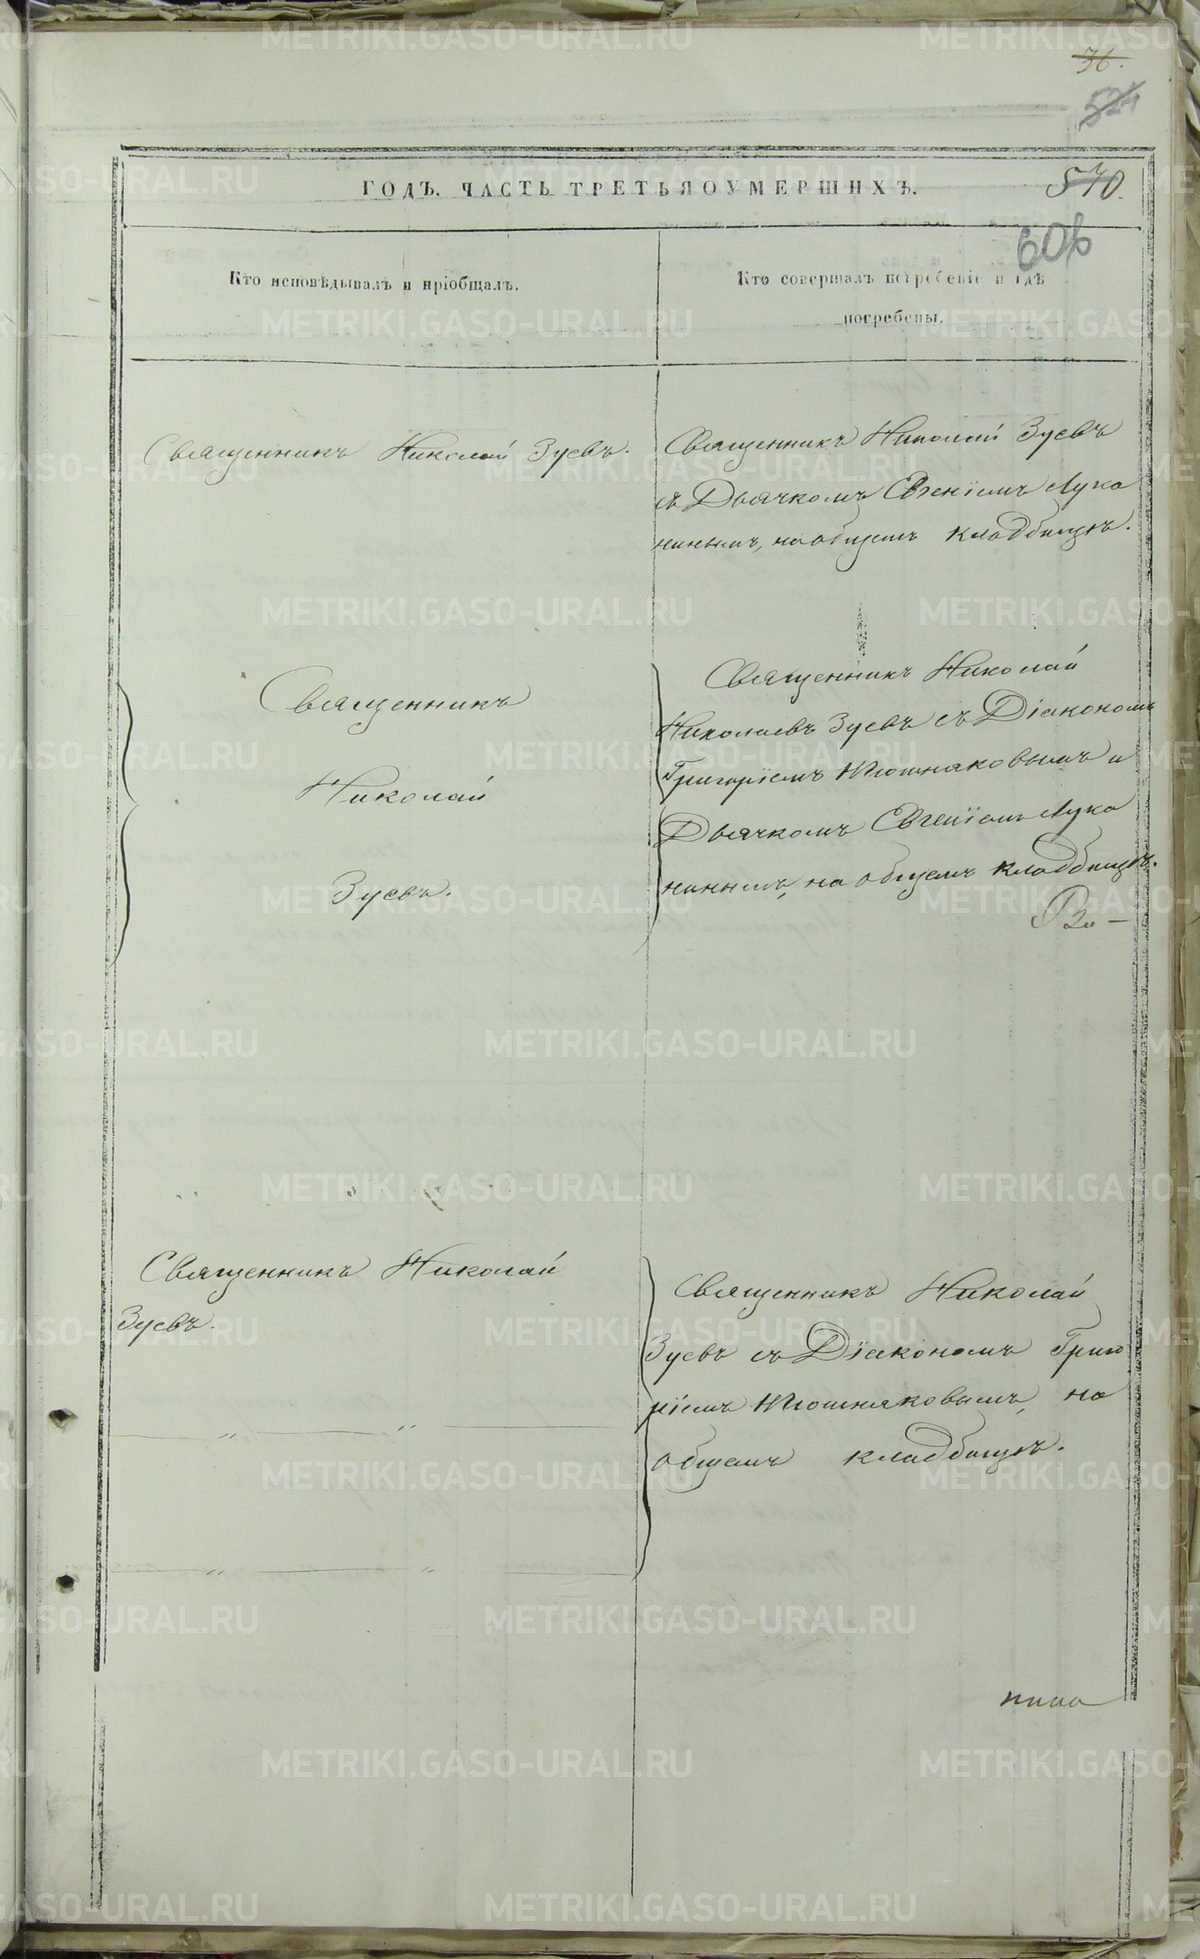 36.
524
ГОДЪ. ЧАСТЬ ТРЕТЬЯ О УМЕРШИХЪ.
570.
606
Кто исповѣдывалъ и пріобщалъ.
Кто совершалъ погребеніе и гдѣ
погребены.
Священникъ Николай Зуевъ.
Священникъ Николай Зуевъ
съ Дьячкомъ Евгеніемъ Лука
нинымъ, на общемъ кладбищѣ.
Священникъ
Николай
Зуевъ.
Священникъ Николай
Николаевъ Зуевъ съ Діакономъ
Григоріемъ и
Дьячкомъ Евгеніемъ Лука
нинымъ, на общемъ кладбищѣ.
Священникъ Николай
Зуевъ.
Священникъ Николай
Зуевъ съ Діакономъ Григо
ріемъ на
общемъ кладбищѣ.
METRIKI.GASO-URAL.RU